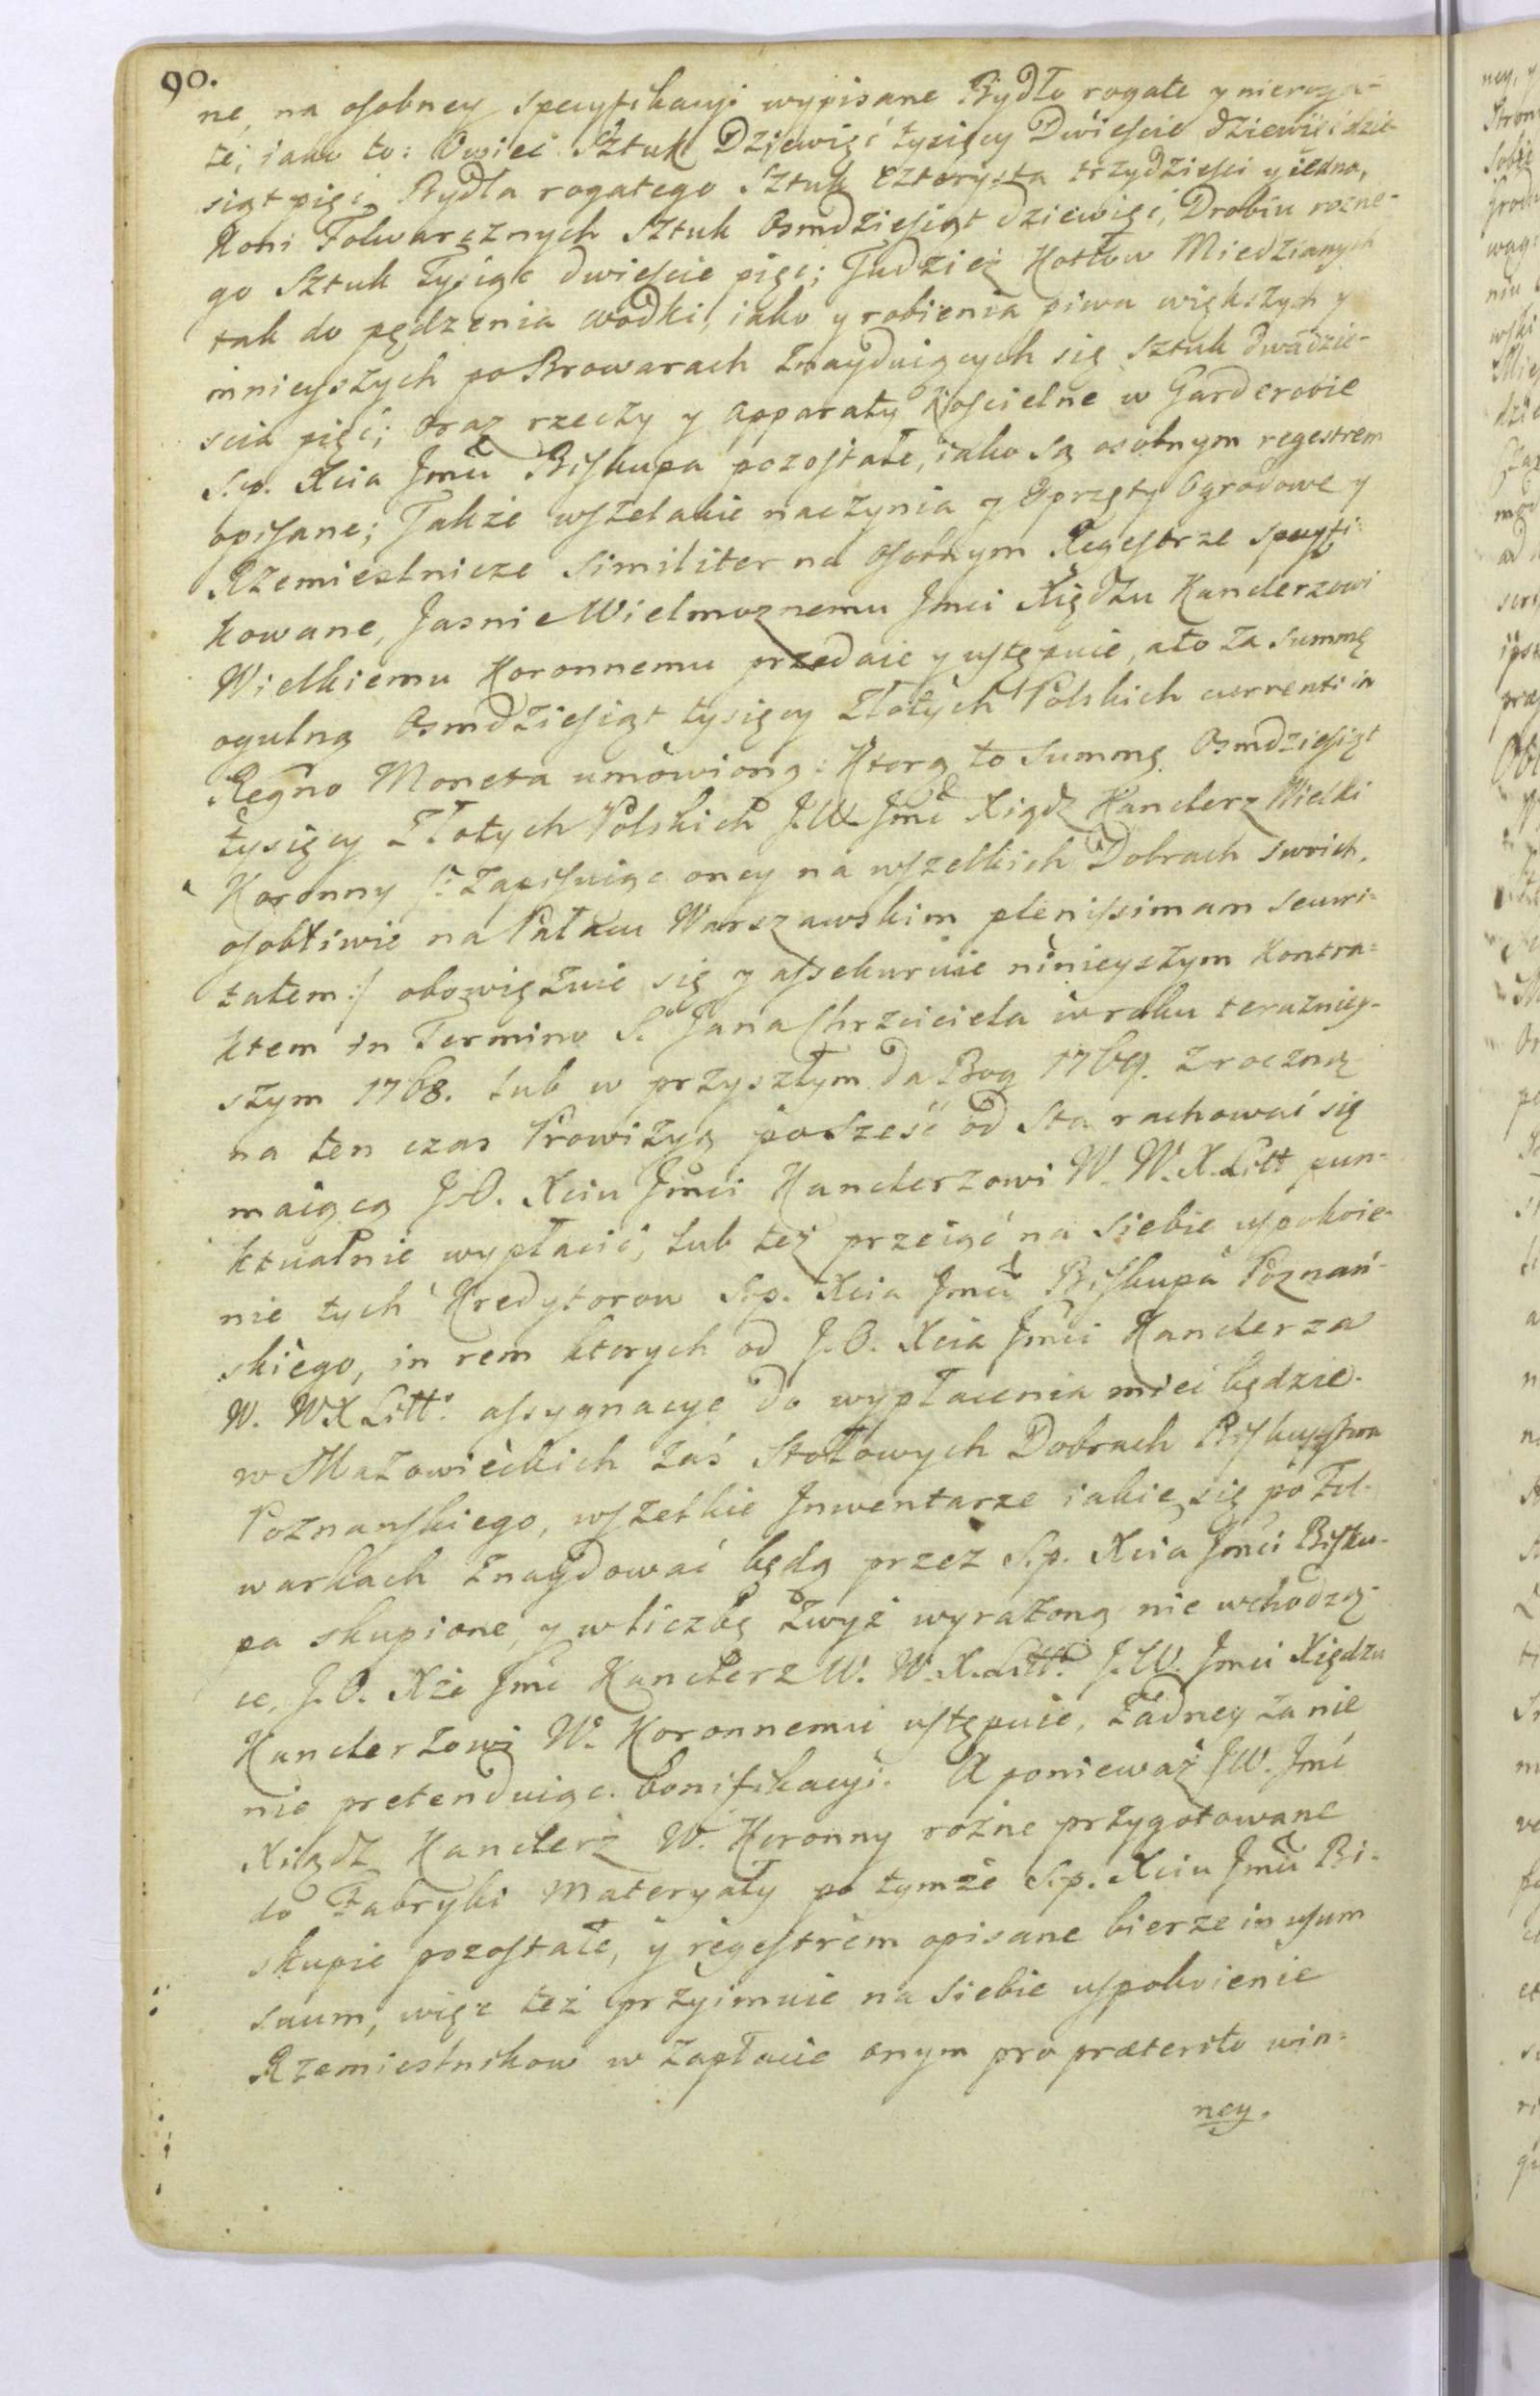 90.
ne, na osobney specyfikacyi wypisane Bydło rogate y nieroga-
te; iako to: Owiec Sztuk Dziewięć tysięcy Dwiescie dziewięćdzie-
siąt pięć, Bydła rogatego Sztuk czterysta trzydzieści y iedna,
Koni Folwarcznych Sztuk Osmdziesiąt dziewięć, Drobiu rozne-
go Sztuk Tysiąc dwieście pięć; Tudzież Kotłow Miedzianych
tak do pędzenia wodki, iako y robienia piwa większych y
mnieyszych po Browarach znayduiących się Sztuk dwadzie-
scia pięć; oraz rzeczy y apparaty Koscielne w Garderobie
S.p. Xcia Jmci Biskupa pozostałe, iako są osobnym regestrem
opisane; Także wszelakie naczynia y Sprzęty Ogrodowe y
Rzemieslnicze similiter na osobnym Regestrze specyfi-
kowane, Jasnie Wielmoznemu Jmci Xiędzu Kanclerzowi
Wielkiemu Koronnemu przedaie y ustępuie, a to za Summę
ogulną Osmdziesiąt tysięcy Złotych Polskich currenti in
Regno Moneta umòwioną: Ktorą to Summę Osmdziesiąt
tysięcy Złotych Polskich J.W. Jmć Xiądz Kanclerz Wielki
Koronny /: zapisuiąc oney na wszelkich Dobrach swoich,
osobliwie na Pałacu Warszawskim plenissimam securi-
tatem :/ obowięzuie się y assekuruie ninieyszym Kontra-
ktem in Termino S. Jana Chrzciciela w roku teraznieiy-
szym 1768. lub w przyszłym da Bog 1769. z roczną
na ten czas Prowizyą po sześć od sta rachować się
maiącą J.O. Xciu Jmci Kanclerzowi W. W.X.Litt pun-
ktualnie wypłacić, lub też przeiąć na siebie uspokoie-
nie tych Kredytorow S.p. Xcia Jmci Biskupa Poznań-
skiego, in rem ktorych od J.O. Xcia Jmci Kanclerza
W. WXLitt: assygnacye do wypłacenia mieć będzie.
w Mazowieckich zaś Stołowych Dobrach Biskupstwa
Poznanskiego, wszelkie Jnwentarze iakie się po Fol-
warkach znaydować będą przez S.p. Xcia Jmci Bisku-
pa skupione, y w liczbę zwyż wyrażoną nie wchodzą-
ce, J.O. Xże Jmć Kanclerz W. W.X.Litt: J.W. Jmci Xiędzu
Kanclerzowi W. Koronnemu ustępuie, żadney za nie
nie pretenduiąc bonifikacyi. A ponieważ JW. Jmć
Xiądz Kanclerz W. Koronny rożne przygotowane
do Fabryki Materyały po tymże S.p. Xciu Jmci Bi-
skupie pozostałe, y regestrem opisane bierze in usum
suum, więc też przyimuie na siebie uspokoienie
Rzemieslnikow w zapłacie onym pro præterito win-
ney.